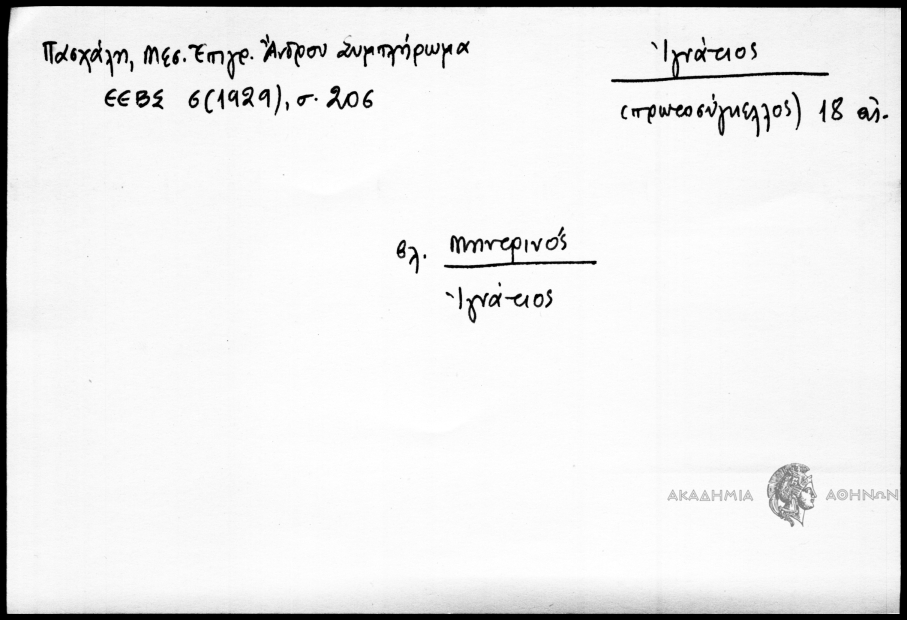 Πασχάλη, Μεσ. Ἐπιγρ. Ἄνδρου Συμπλήρωμα
ΕΕΒΣ 6 (1929), σ. 206
Ἰγνάτιος
(πρωτοσύγκελλος) 18 αἰ.
βλ.
Ἰγνάτιος
ΑΚΑΔΗΜΙΑ ΑΘΗΝΩΝ